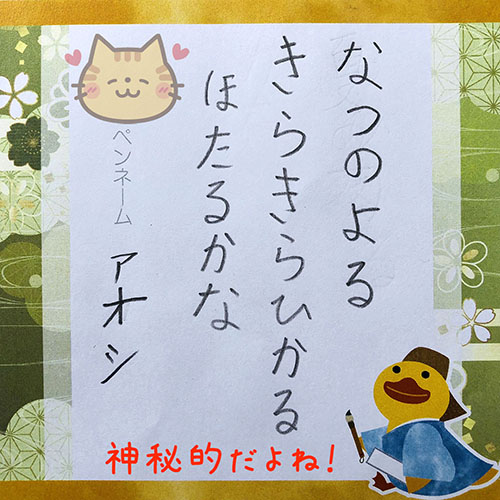 なつのよる
きらきらひかる
ほたるかな
ペンネーム アオシ
神秘的だよね!